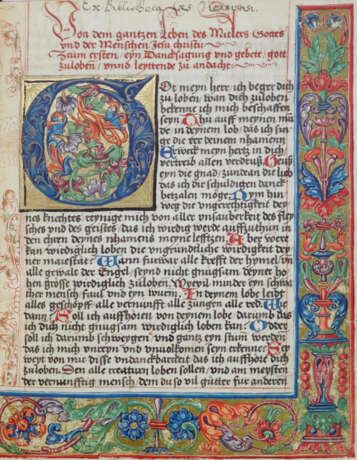 Ex Bibliotheca
Von dem gantzen Leben des Mitlers Gottes
vnd der Menschen Jesu christi
Zum ersten eyn Dancksagung vnd gebett gott
zuloben vnnd leytende zu andacht
Got meyn herr ich beger dich
zu loben wan dich zuloben
bekenne ich mich beschaffen
seyn Thu auff meynen mu
de in deynem lob das ich sin
ge die eer deinem nhamenn
Erweck meyn hertz in dich
vertreib allen verdruß Geuß
eyn die gnad zundean die lieb
das ich dir schuldigen danck
betzalen möge Nym hin
weg die vngerechtigkeit dey
nes knechtes reynige mich von aller vnsauberkeit des fleys
ches vnd des geistes das ich wirdig werde auffzuthun in
den ehren deynes nhamens meyne leffzen Aber wer
kan wirdiglich loben die vngrundtliche wirdigkeit dey
ner maiestat Wann furwar alle krefft der hymel vn
alle gewalt der Engel seynd nicht gnugsam deyner ho
hen grosse wirdiglich zuloben Wieuil minder eyn schwa
cher mensch faul vnd eyn wurm In deynem lobe leidt
alles geschopff alle vernunfft alle zungen alle red Wie
dan Soll ich auffhoren von deynem lobe darumb das
ich dich nicht gnugsam wirdiglich loben kan Oder
soll ich darumb schweygen vnd gantz eyn stum werden
das ich mich vnreyn vnd vnuolkomen seyn erkenne Sey
weyt von mir disse vndanckbarkeit das ich auffhöre dich
zuloben Den alle creaturn loben sollen vnd am meysten
der vernunfftig mensch dem du so vil gütter fur anderen